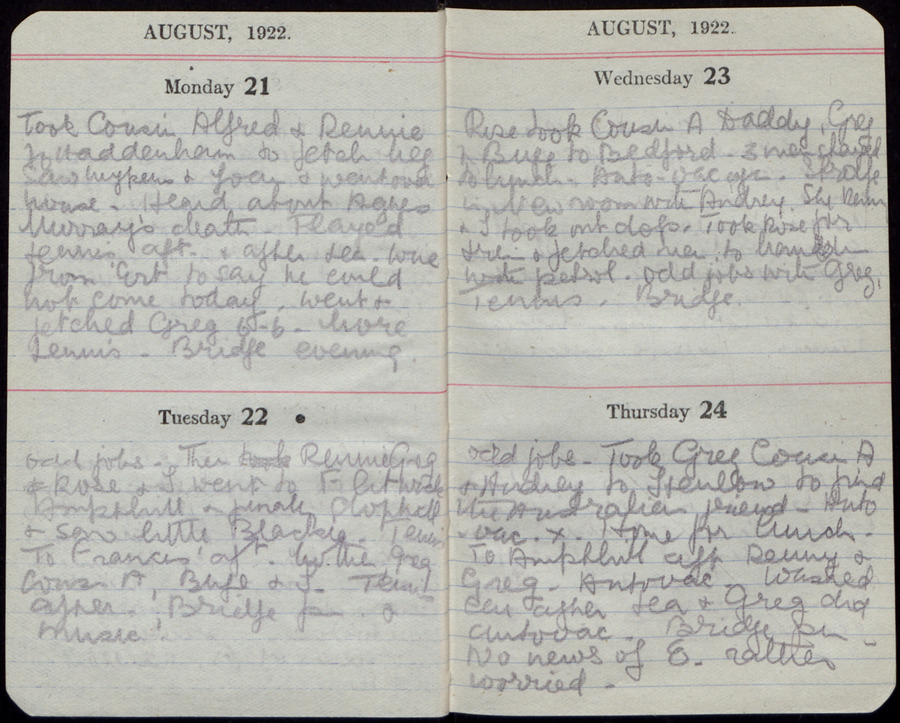 AUGUST, 1922.
Monday 21
Took Cousin Alfred & Rennie
to Haddenham to fetch
Saw & & went over
house - Heard about Agnes
Murray's death. Played
tennis aft. & after tea. Wire
from to say he could
not come today. Went &
fetched Greg 6-6. More
tennis - Bridge evening.
Tuesday 22
odd jobs - Then took Rennie Greg
& Rose & I went to Flitwick
Ampthill & finally Clophill
& saw little Blackie. Tennis
To Francis' aft. with Greg
Cousin A, & I - Tennis
after. Bridge &
music.
AUGUST, 1922.
Wednesday 23
Rose took Cousin A Daddy, Greg
& to Bedford. 3 men
to lunch. Auto-vac again.
in New room with Audrey. She Rennie
& I took out dogs. Took Rose for
& fetched her, to
with petrol. odd jobs with Greg.
Tennis. Bridge.
Thursday 24
odd jobs - Took Greg Cousin A
& Audrey to Henlow to find
the Australian friend - Auto
-vac. x. Home for lunch -
To Ampthill aft Renny &
Greg - Autovac. Washed
car after tea & Greg did
autovac. Bridge
No news of E. rather
worried -